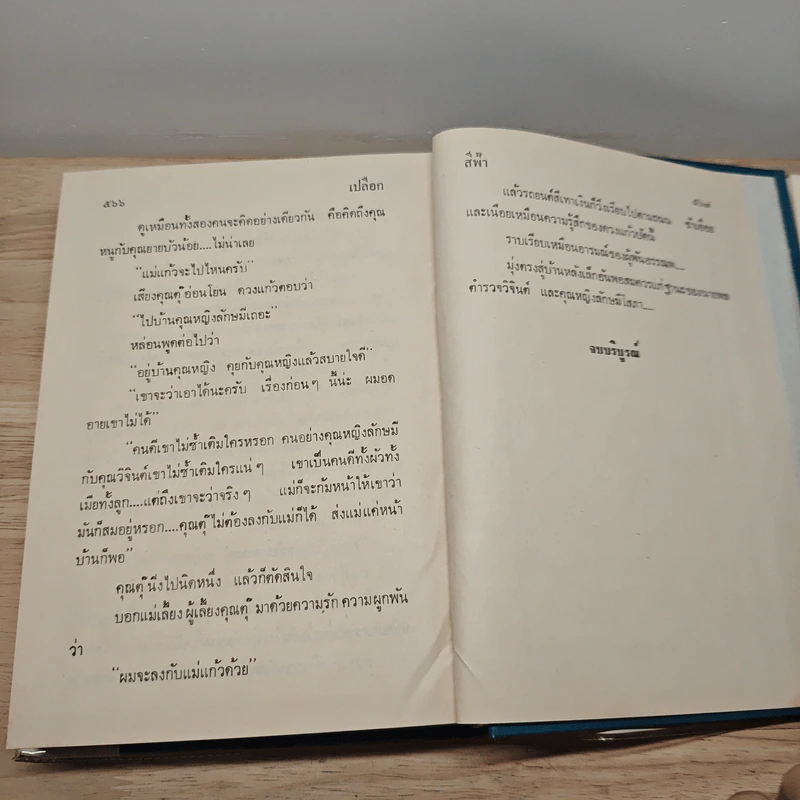 ๕๖๖
เปลือก
ดูเหมือนทั้งสองคนจะคิดอย่างเดียวกัน คือคิดถึงคุณ
หนูกับคุณยายบัวน้อย....ไม่น่าเลย
“แม่แก้วจะไปไหนครับ”
เสียงคุณตุ๊อ่อนโยน ดวงแก้วตอบว่า
“ไปบ้านคุณหญิงลักษมีเถอะ”
หล่อนพูดต่อไปว่า
“อยู่บ้านคุณหญิง คุยกับคุณหญิงแล้วสบายใจดี”
“เขาจะว่าเอาได้นะครับ เรื่องก่อนๆ นี้น่ะ ผมอด
อายเขาไม่ได้”
“คนดีเขาไม่ซ้ำเติมใครหรอก คนอย่างคุณหญิงลักษมี
กับคุณวิจินต์เขาไม่ซ้ำเติมใครแน่ๆ เขาเป็นคนดีทั้งผัวทั้ง
เมียทั้งลูก....แต่ถึงเขาจะว่าจริงๆ แม่ก็จะก้มหน้าให้เขาว่า
มันก็สมอยู่หรอก....คุณตุ๊ไม่ต้องลงกับแม่ก็ได้ ส่งแม่แค่หน้า
บ้านก็พอ”
คุณตุ๊นิ่งไปนิดหนึ่ง แล้วก็ตัดสินใจ
บอกแม่เลี้ยง ผู้เลี้ยงคุณตุ๊ มาด้วยความรัก ความผูกพัน
ว่า
“ผมจะลงกับแม่แก้วด้วย”
สีฟ้า
๕๖๗
แล้วรถยนต์สีเทาเงินก็วิ่งเรียบไปตามถนน ช้าเอื่อย
และเนือยเหมือนความรู้สึกของดวงแก้วบัดนี้
ราบเรียบเหมือนอารมณ์ของผู้พันอรรณพ....
มุ่งตรงสู่บ้านหลังเล็กอันพอสมควรแก่ฐานะของนายพล
ตำรวจวิจินต์ และคุณหญิงลักษมีโสภา....
จบบริบูรณ์